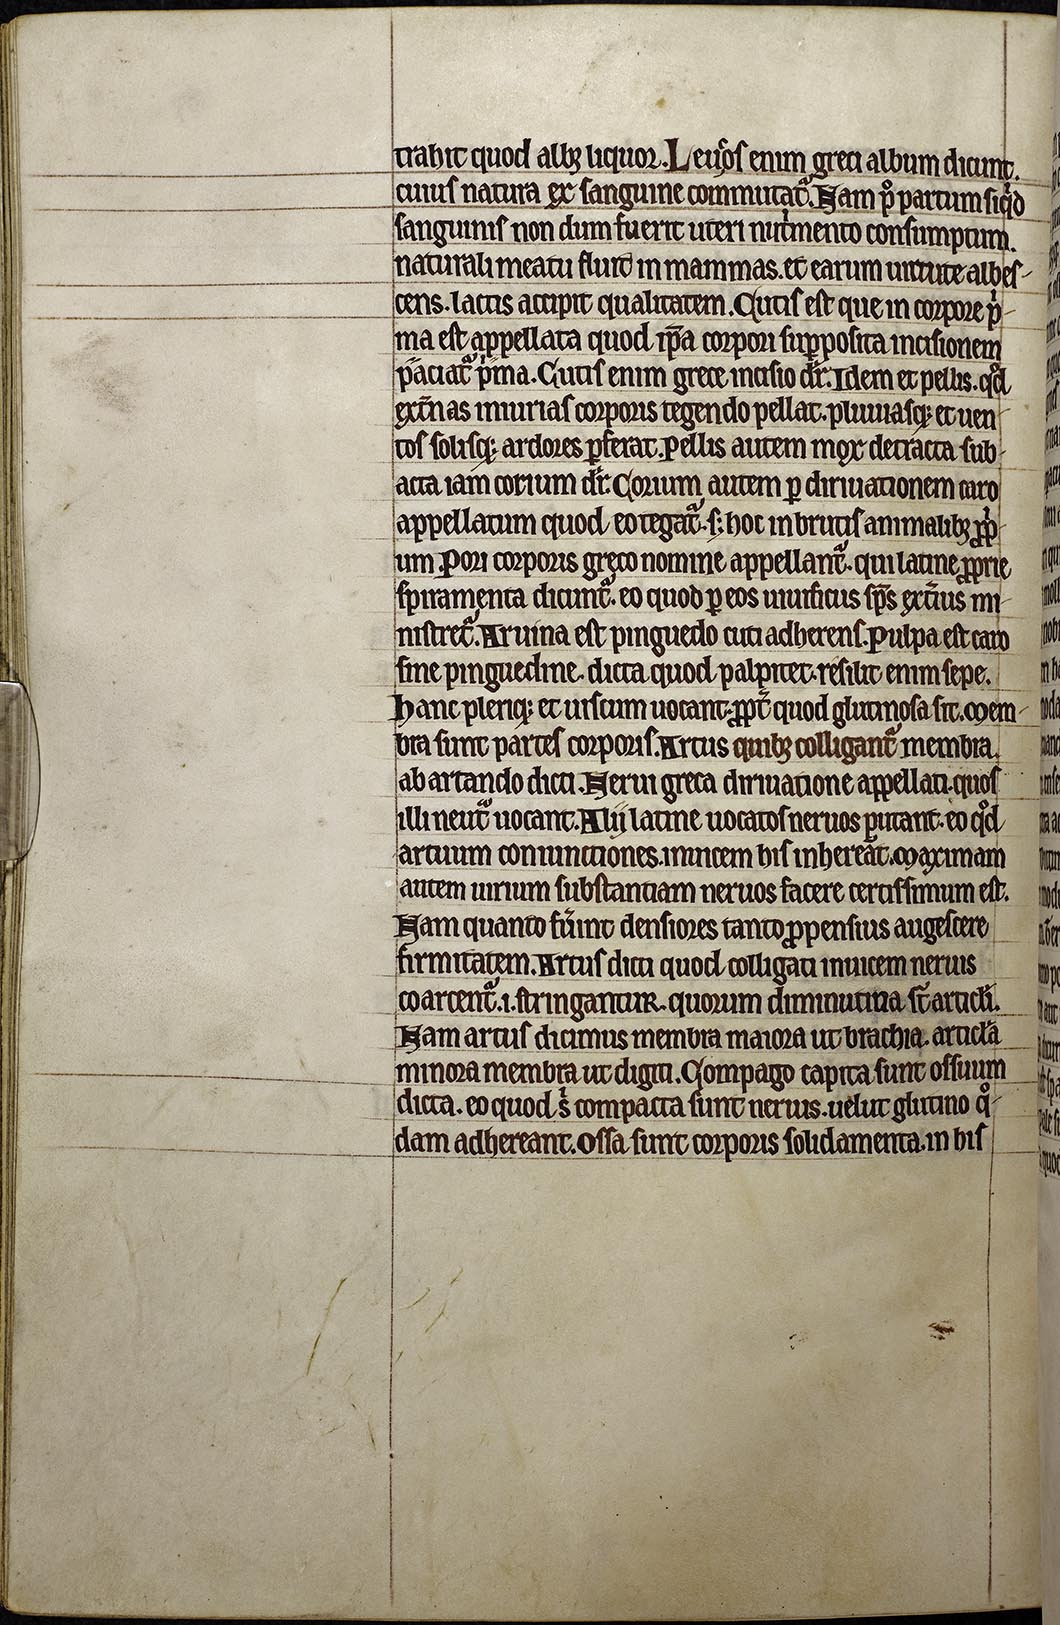 trahit quod albꝫ liquor. Leucos enim greci album dicunt.
cuius natura ex sanguine commutat᷑. Nam p̊ partum siqͥd
sanguinis non dum fuerit uteri nutͥmento consumptum.
naturali meatu fluit in mammas. et earum uirtute albes-
cens. lactis accipit qualitatem. Cutis est que in corpore pͥ-
ma est appellata quod ip̄a corpori supꝑosita incisionem
pͣciat᷑ pͥma. Cutis enim grece incisio dr̄. Idem et pellis. qͦd
ext̄nas iniurias corporis tegendo pellat. pluuiasqꝫ et uen-
tos solisqꝫ ardores ꝑferat. Pellis autem mox detracta sub-
acta iam corium dr̄. Corium autem ꝑ diriuationem caro
appellatum quod eo tegat᷑. s; hoc in brutis animalibꝫ ꝓpͥ-
um. Pori corporis greco nomine appellant᷑. qui latine ꝓprie
spiramenta dicunt᷑. eo quod ꝑ eos uiuificus sp̄s ext̄ius mi-
nistret᷑. Aruina est pinguedo cuti adherens. Pulpa est caro
sine pinguedine. dicta quod palpitet. resilit enim sepe.
Hanc pleriqꝫ et uiscum uocant. ꝓpt̄ quod glutinosa sit. Mem-
bra sunt partes corporis. Artus quibꝫ colligant᷑ membra.
ab artando dicti. Nerui greca diriuatione appellati. quos
illi neut᷑ uocant. Alii latine uocatos neruos putant. eo qͦd
artuum coniunctiones. inuicem his inhereāt. Maximam
autem uirium substantiam neruos facere certissimum est.
Nam quanto fūint densiores tanto ꝓpensius augescere
firmitatem. Artus dicti quod colligati inuicem neruis
coarcent᷑. i. stringantur. quorum diminutiua st̄ articl̄i.
Nam artus dicimus membra maiora ut brachia. articl̄a
minora membra ut digiti. Compago capita sunt ossuum
dicta. eo quod sͥ compacta sunt neruis. uelut glutino qͦ-
dam adhereant. Ossa sunt corporis solidamenta. in his